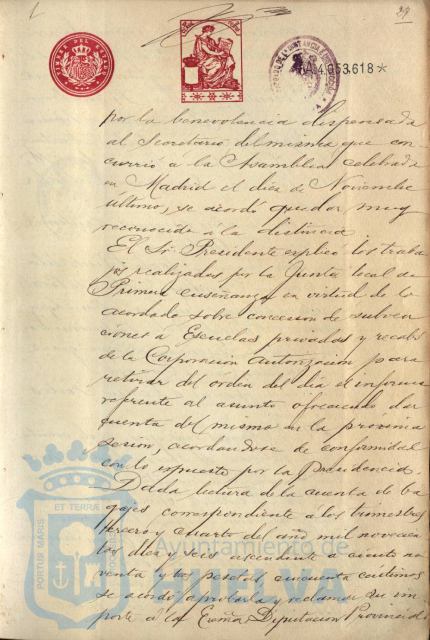 29
TIMBRE DEL ESTADO
A4.053.618*
por la benevolencia dispensada
al Secretario del mismo que con
currió á la Asamblea celebrada
en Madrid el diez de Noviembre
último, se acordó quedar muy
reconocido á la distinción.
El Sr. Presidente explicó los traba
jos realizados por la Junta local de
Primera enseñanza en virtud de lo
acordado sobre concesión de subven
ciones á Escuelas privadas y recabó
de la Corporación autorización para
retirar del orden del día el informe
referente al asunto ofreciendo dar
cuenta del mismo en la próxima
sesión, acordandose de conformidad
con lo expuesto por la Presidencia.
Dada lectura de la cuenta de ba
gajes correspondiente á los trimestres
tercero y cuarto del año mil novecien
tos diez y seis ascendente á ciento no
venta y tres pesetas, cincuenta céntimos
se acordó aprobarla y reclamar su im
porte á la Exma Diputación Provincial
PORTUS MARIS ET TERRAE
Ayuntamiento de
HUELVA